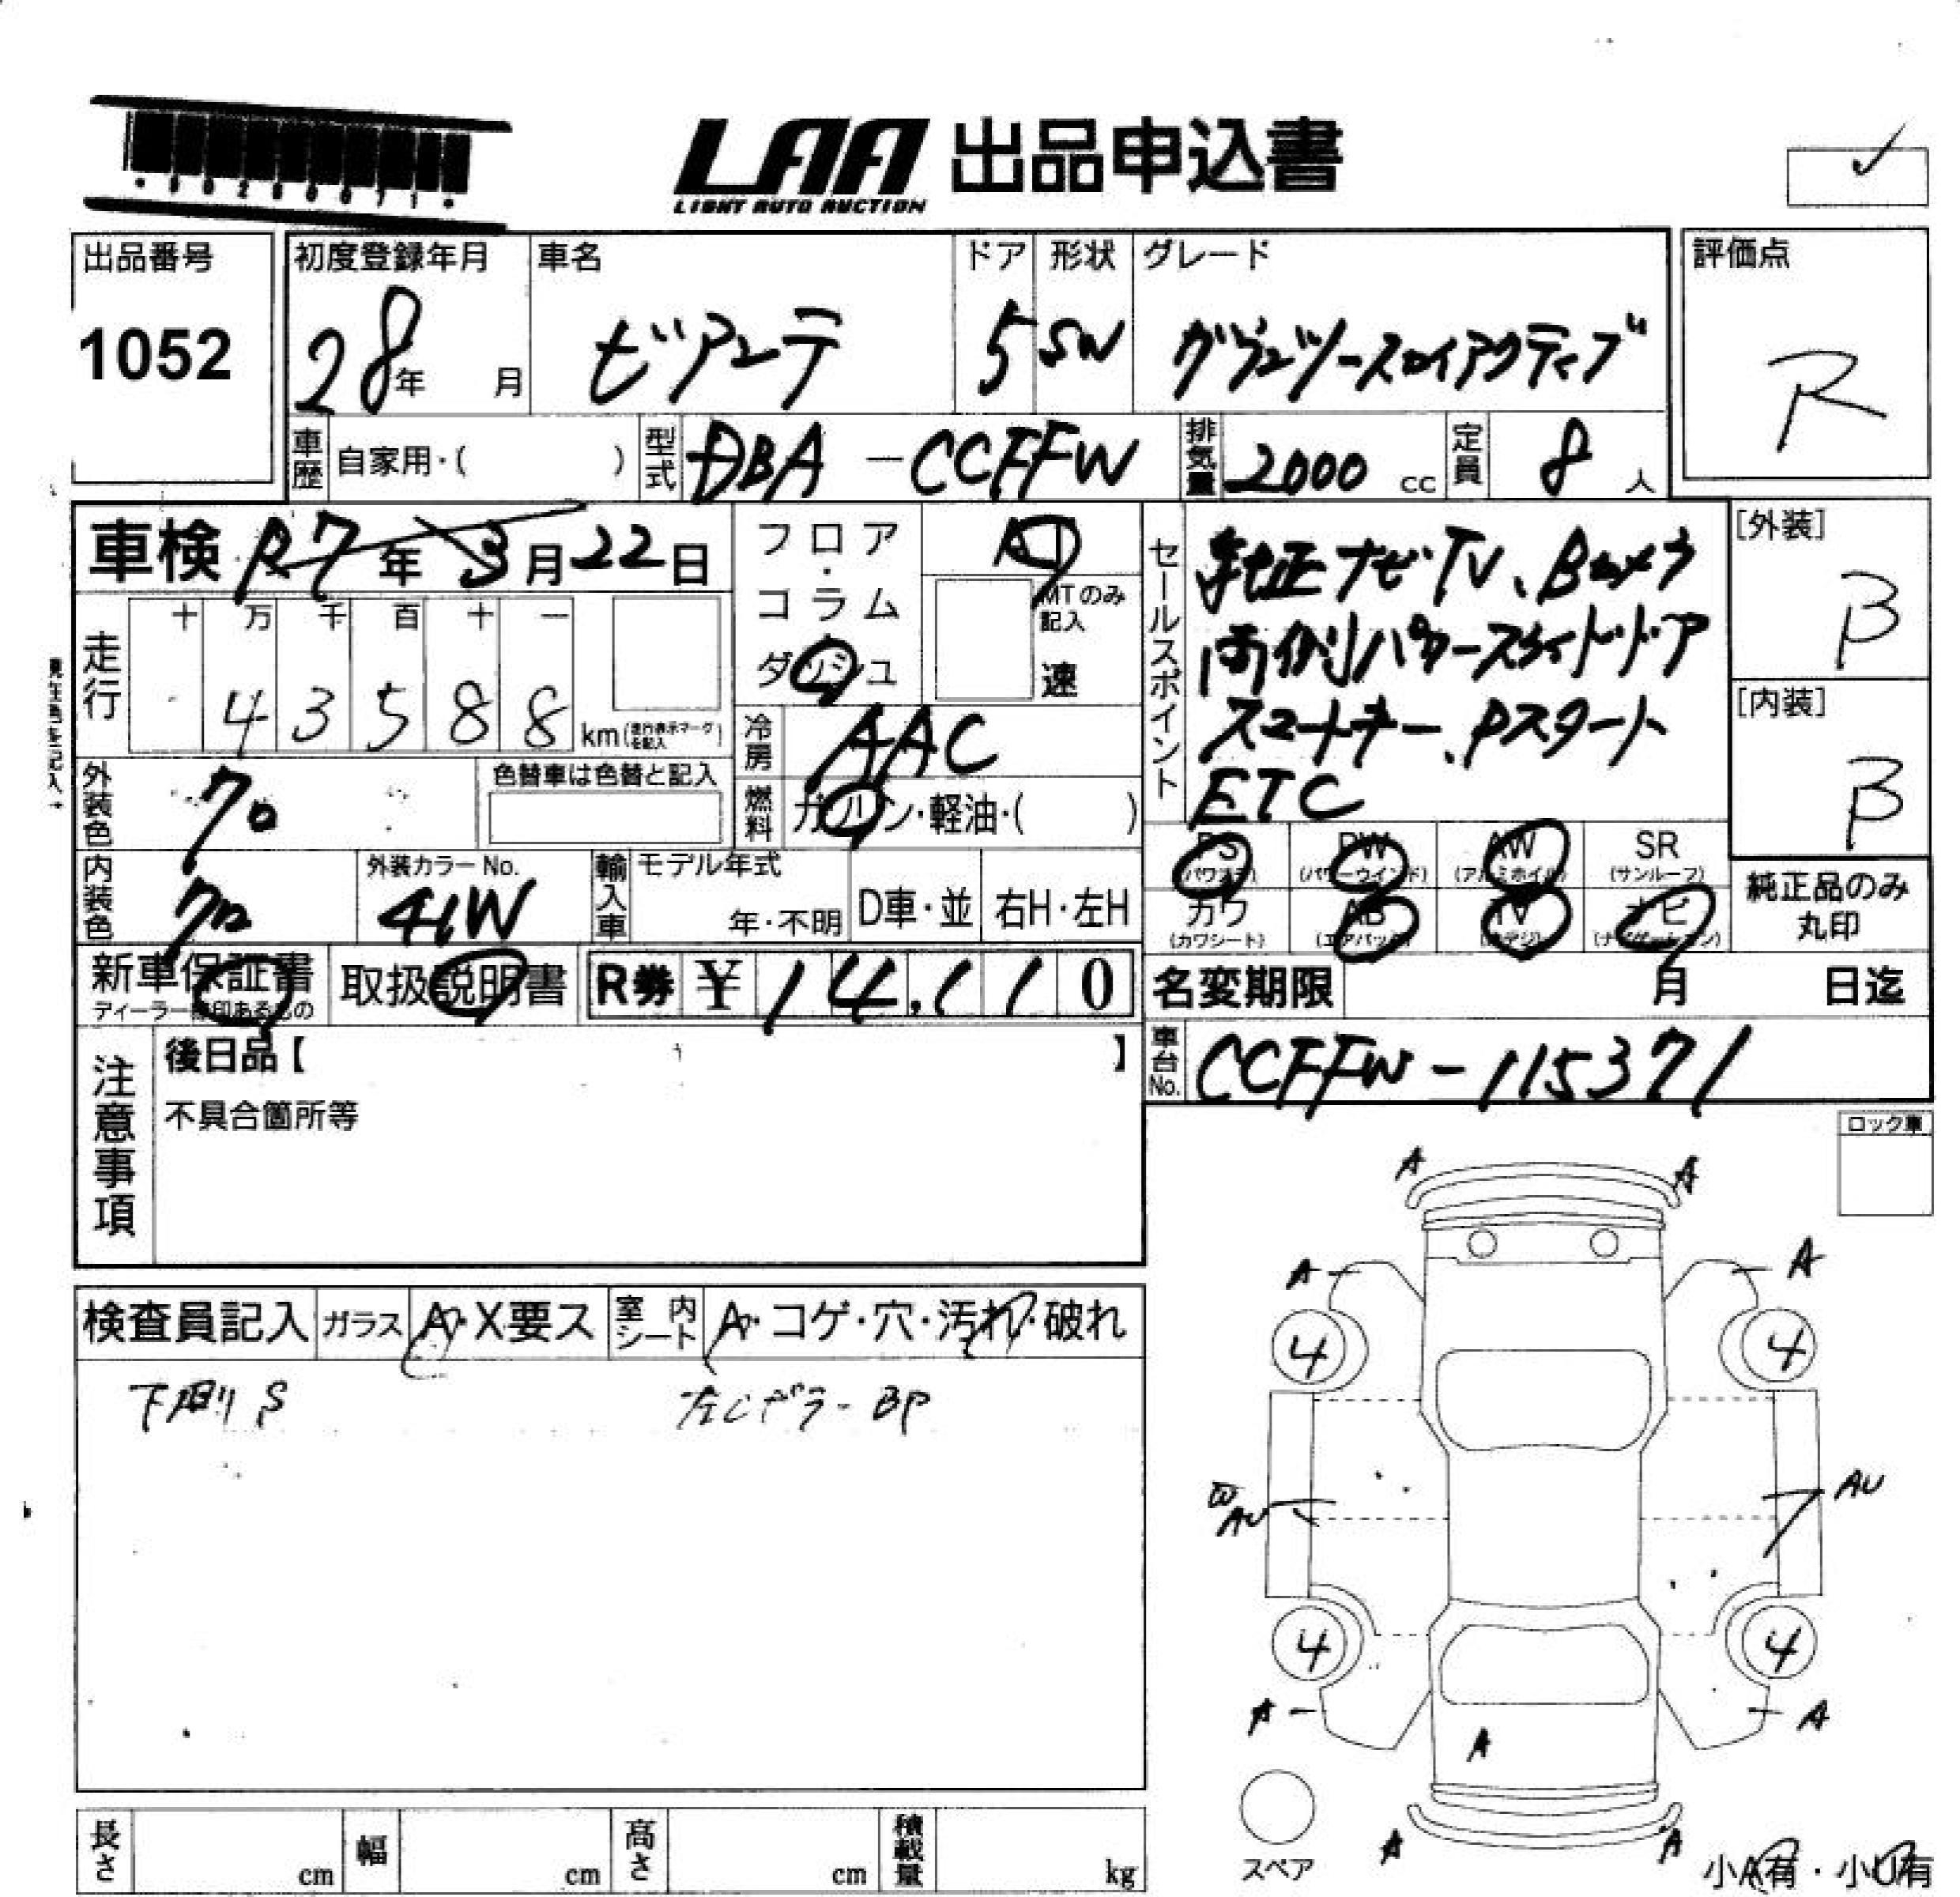 LAA 出品申込書
LIGHT AUTO AUCTION
出品番号
1052
初度登録年月
28年 月
車名
ビアンテ
ドア
5
形状
SW
グレード
グランツースカイアクティブ
評価点
R
車歴 自家用・( )
型式 DBA-CCFFW
排気量 2000 cc
定員 8 人
車検 R7年 3月22日
走行
十 万 千 百 十 一
4 3 5 8 8 km
フロア・コラム
ダッシュ
AT
MTのみ記入
速
冷房 AAC
燃料 ガソリン・軽油・( )
セールスポイント
純正ナビ・TV、Bカメラ
両側パワースライドドア
スマートキー、Pスタート
ETC
[外装]
B
[内装]
B
外装色 クロ
色替車は色替と記入
内装色 クロ
外装カラーNo.
41W
輸入車 モデル年式
年・不明
D車・並
右H・左H
PS (パワステ)
PW (パワーウインド)
AW (アルミホイル)
SR (サンルーフ)
カワ (カワシート)
AB (エアバック)
TV
ナビ (ナビゲーション)
純正品のみ
丸印
新車保証書
取扱説明書
R券 ¥ 14,110
名変期限 月 日迄
車台No. CCFFW-115371
注意事項
後日品【 】
不具合箇所等
ロック車
検査員記入
ガラス A・X要ス
室内シート A・コゲ・穴・汚れ・破れ
下廻りS
左Cピラー BP
A A
A A
4 4
W
AU AU
4 4
A A
A
A A
スペア
小A有・小U有
長さ cm
幅 cm
高さ cm
積載量 kg